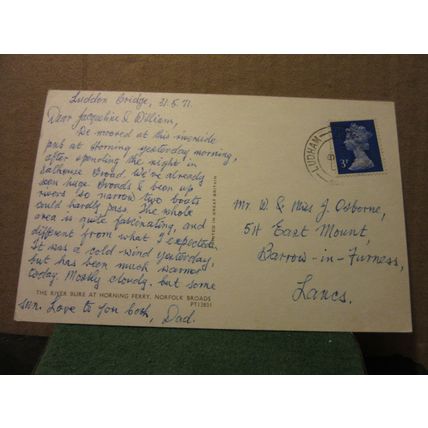 Luddon Bridge, 31.5.71.
Dear Jacqueline & William,
De-moored at this riverside
pub at Horning yesterday morning,
after spending the night in
Salhouse Broad. We've already
seen huge Broads & been up
rivers so narrow two boats
could hardly pass. The whole
area is quite fascinating, and
different from what I expected.
It was a cold wind yesterday,
but has been much warmer
today. Mostly cloudy, but some
sun. Love to you both, Dad.
THE RIVER BURE AT HORNING FERRY, NORFOLK BROADS
PT12851
PRINTED IN GREAT BRITAIN
LUDHAM
3P
Mr W. & Miss J. Osborne,
5A East Mount,
Barrow-in-Furness,
Lancs.